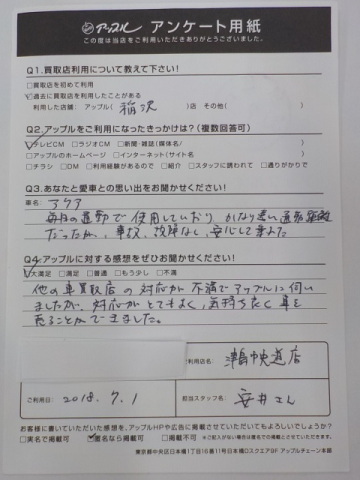 アップル アンケート用紙
この度は当店をご利用いただきありがとうございました。
Q1.買取店利用について教えて下さい!
□買取店を初めて利用
☑過去に買取店を利用したことがある
利用した店舗: アップル( 稲沢 )店 その他( )
Q2.アップルをご利用になったきっかけは?(複数回答可)
☑テレビCM □ラジオCM □新聞・雑誌(媒体名/ )
□アップルのホームページ □インターネット(サイト名 )
□チラシ □DM □利用経験があるので □紹介 □スタッフに誘われて □通りがかりで
Q3.あなたと愛車との思い出をお聞かせください!
車名: アクア
毎日の通勤で使用しており、かなり悪い道路
だったが、事故、故障なし、安心して乗れた
Q4.アップルに対する感想をぜひお聞かせください!
☑大満足 □満足 □普通 □もう少し □不満
他の車買取店の対応が不満でアップルに伺い
ましたが、対応がとてもよく、気持ち良く車を
売ることができました。
ご利用店名: 津島中央道店
ご利用日: 2018.7.1
担当スタッフ名: 安井さん
お客様に書いていただいた感想を、アップルHPや広告に掲載させていただいてもよろしいでしょうか?
□実名で掲載可 ☑匿名なら掲載可 □掲載不可 ※ご記入がない場合は匿名での掲載とさせていただきます。
東京都中央区日本橋1丁目16番11号日本橋Dスクエア9F アップルチェーン本部